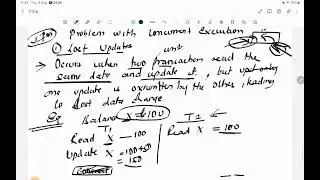 Problem with Concurrent Execution
① Lost Updates
→ Occurs when two transaction read the
same data and update it, but
one update is overwritten by the other, leading
to lost data change
Eg Balance X = 100
T1 T2
Read X — 100 Read X = 100
Update X = 100+50
= 150